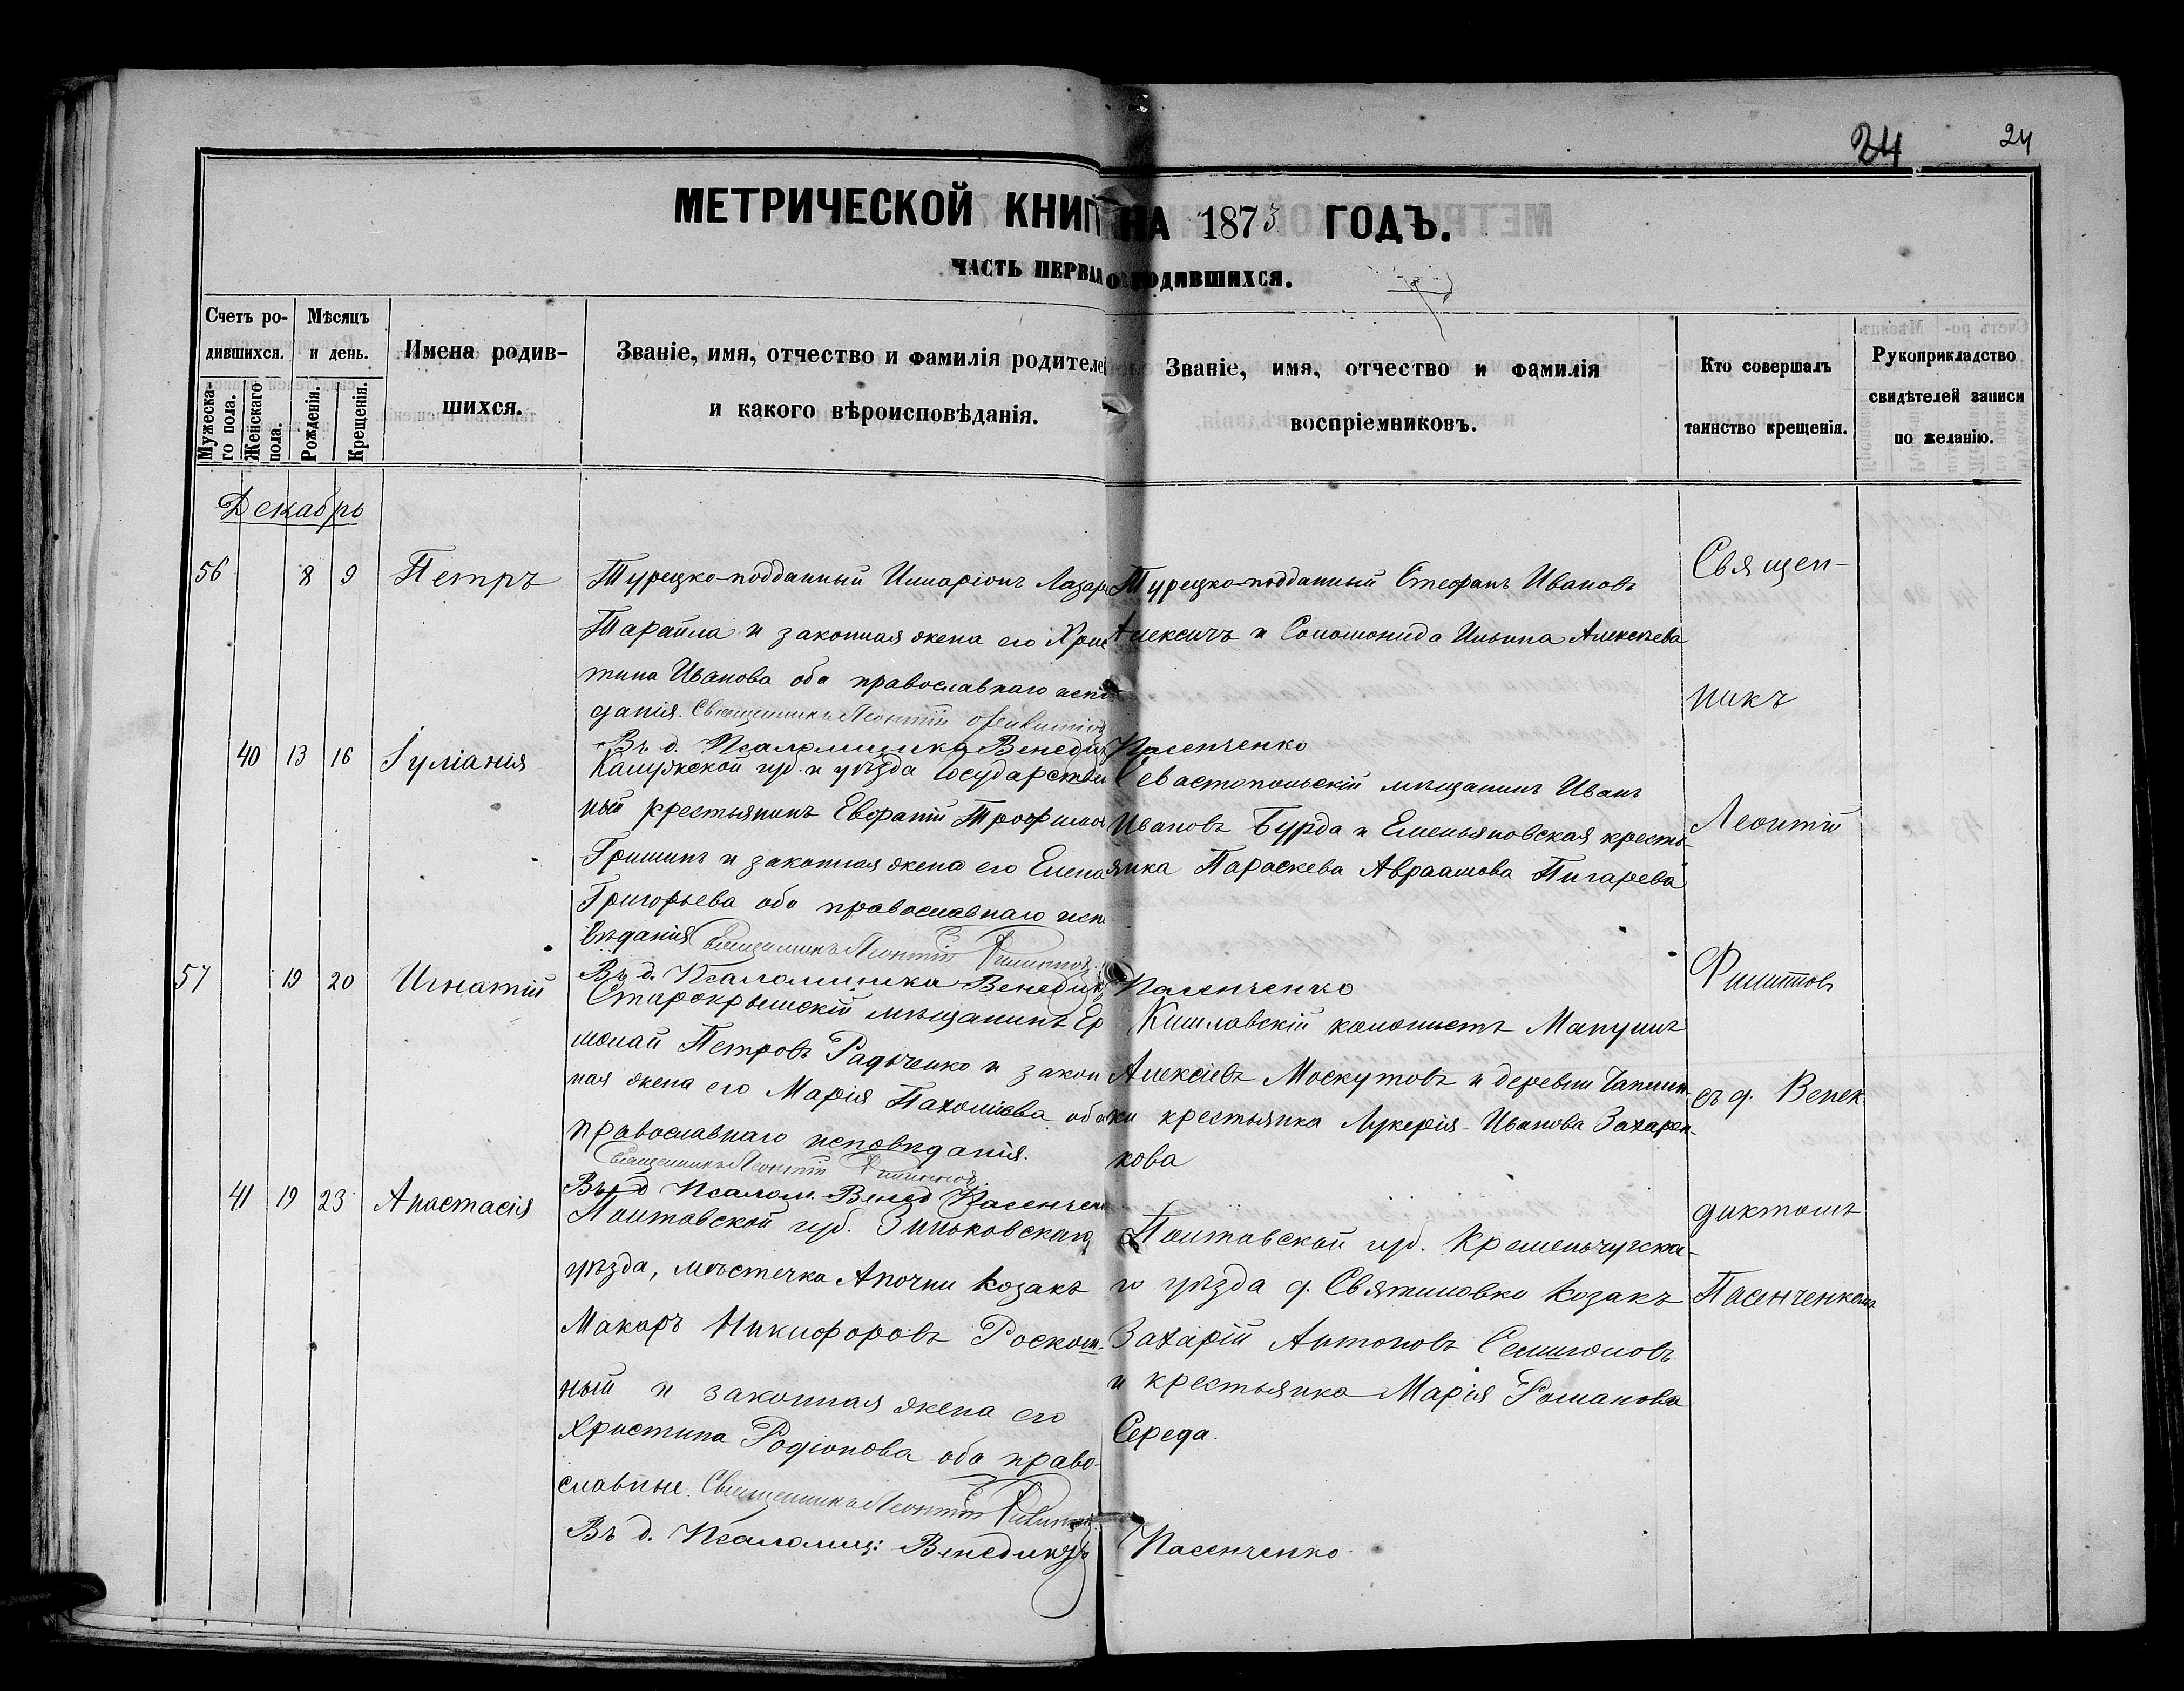 24 24
МЕТРИЧЕСКОЙ КНИГ НА 1873 ГОДЪ.
ЧАСТЬ ПЕРВАЯ О РОДИВШИХСЯ.
Счетъ родившихся.
Мужескаго пола.
Женскаго пола.
Мѣсяцъ и день.
Рожденія.
Крещенія.
Имена родившихся.
Званіе, имя, отчество и фамилія родителей
и какого вѣроисповѣданія.
Званіе, имя, отчество и фамилія
воспріемниковъ.
Кто совершалъ
таинство крещенія.
Рукоприкладство
свидѣтелей записи
по желанію.
Декабрь
56 8 9 Петръ
Турецко-подданный Илларіонъ Лазар
Тарайла и законная жена его Хрис
тина Иванова оба православнаго испо
данія. Священникъ Леонтій Филиппов
Въ д. Псаломщика Венедик Пасенченко
Турецко-подданный Стефанъ Ивановъ
Алексичъ и Соломонида Ильина Алексѣева
40 13 16 Іуліанія
Калужской губ. и уѣзда Государствен
ный крестьянинъ Евфатій Трофимов
Гришинъ и законная жена его Елена
Григорьева оба православнаго испо
вѣданія Священникъ Леонтій Филиппов
Въ д. Псаломщика Венедик Пасенченко
Севастопольскій мѣщанинъ Иванъ
Ивановъ Бурда и Емельяновская кресть-
янка Параскева Авраамова Пигарева
57 19 20 Игнатій
Старокрымскій мѣщанинъ Ер
молай Петровъ Радченко и закон
ная жена его Марія Пахоміева оба
православнаго исповѣданія.
Священникъ Леонтій Филиппов
Въ д Псалом. Венед Пасенчен
Кишлавскій колонистъ Манушъ
Алексіевъ Москутовъ и деревни Чаплин-
ки крестьянка Лукерія Иванова Захарен-
кова
41 19 23 Анастасія
Полтавской губ. Зиньковскаго
уѣзда, мѣстечка Апочни козакъ
Макаръ Никифоровъ Роскош-
ный и законная жена его
Христина Родіонова оба право-
славные. Священникъ Леонтій Филиппов
Въ д. Псаломщ: Венедиктъ Пасенченко
Полтавской губ. Кременчугска-
го уѣзда д. Святиловки козакъ
Захарій Антоновъ Семигоновъ
и крестьянка Марія Романова
Середа.
Священ-
никъ
Леонтій
Филиппов
съ д. Венек
диктомъ
Пасенченкомъ